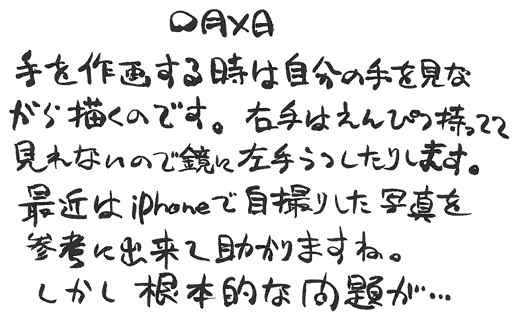 〇月×日
手を作画する時は自分の手を見な
がら描くのです。右手はえんぴつ持ってて
見れないので鏡に左手うつしたりします。
最近はiPhoneで自撮りした写真を
参考に出来て助かりますね。
しかし根本的な問題が…